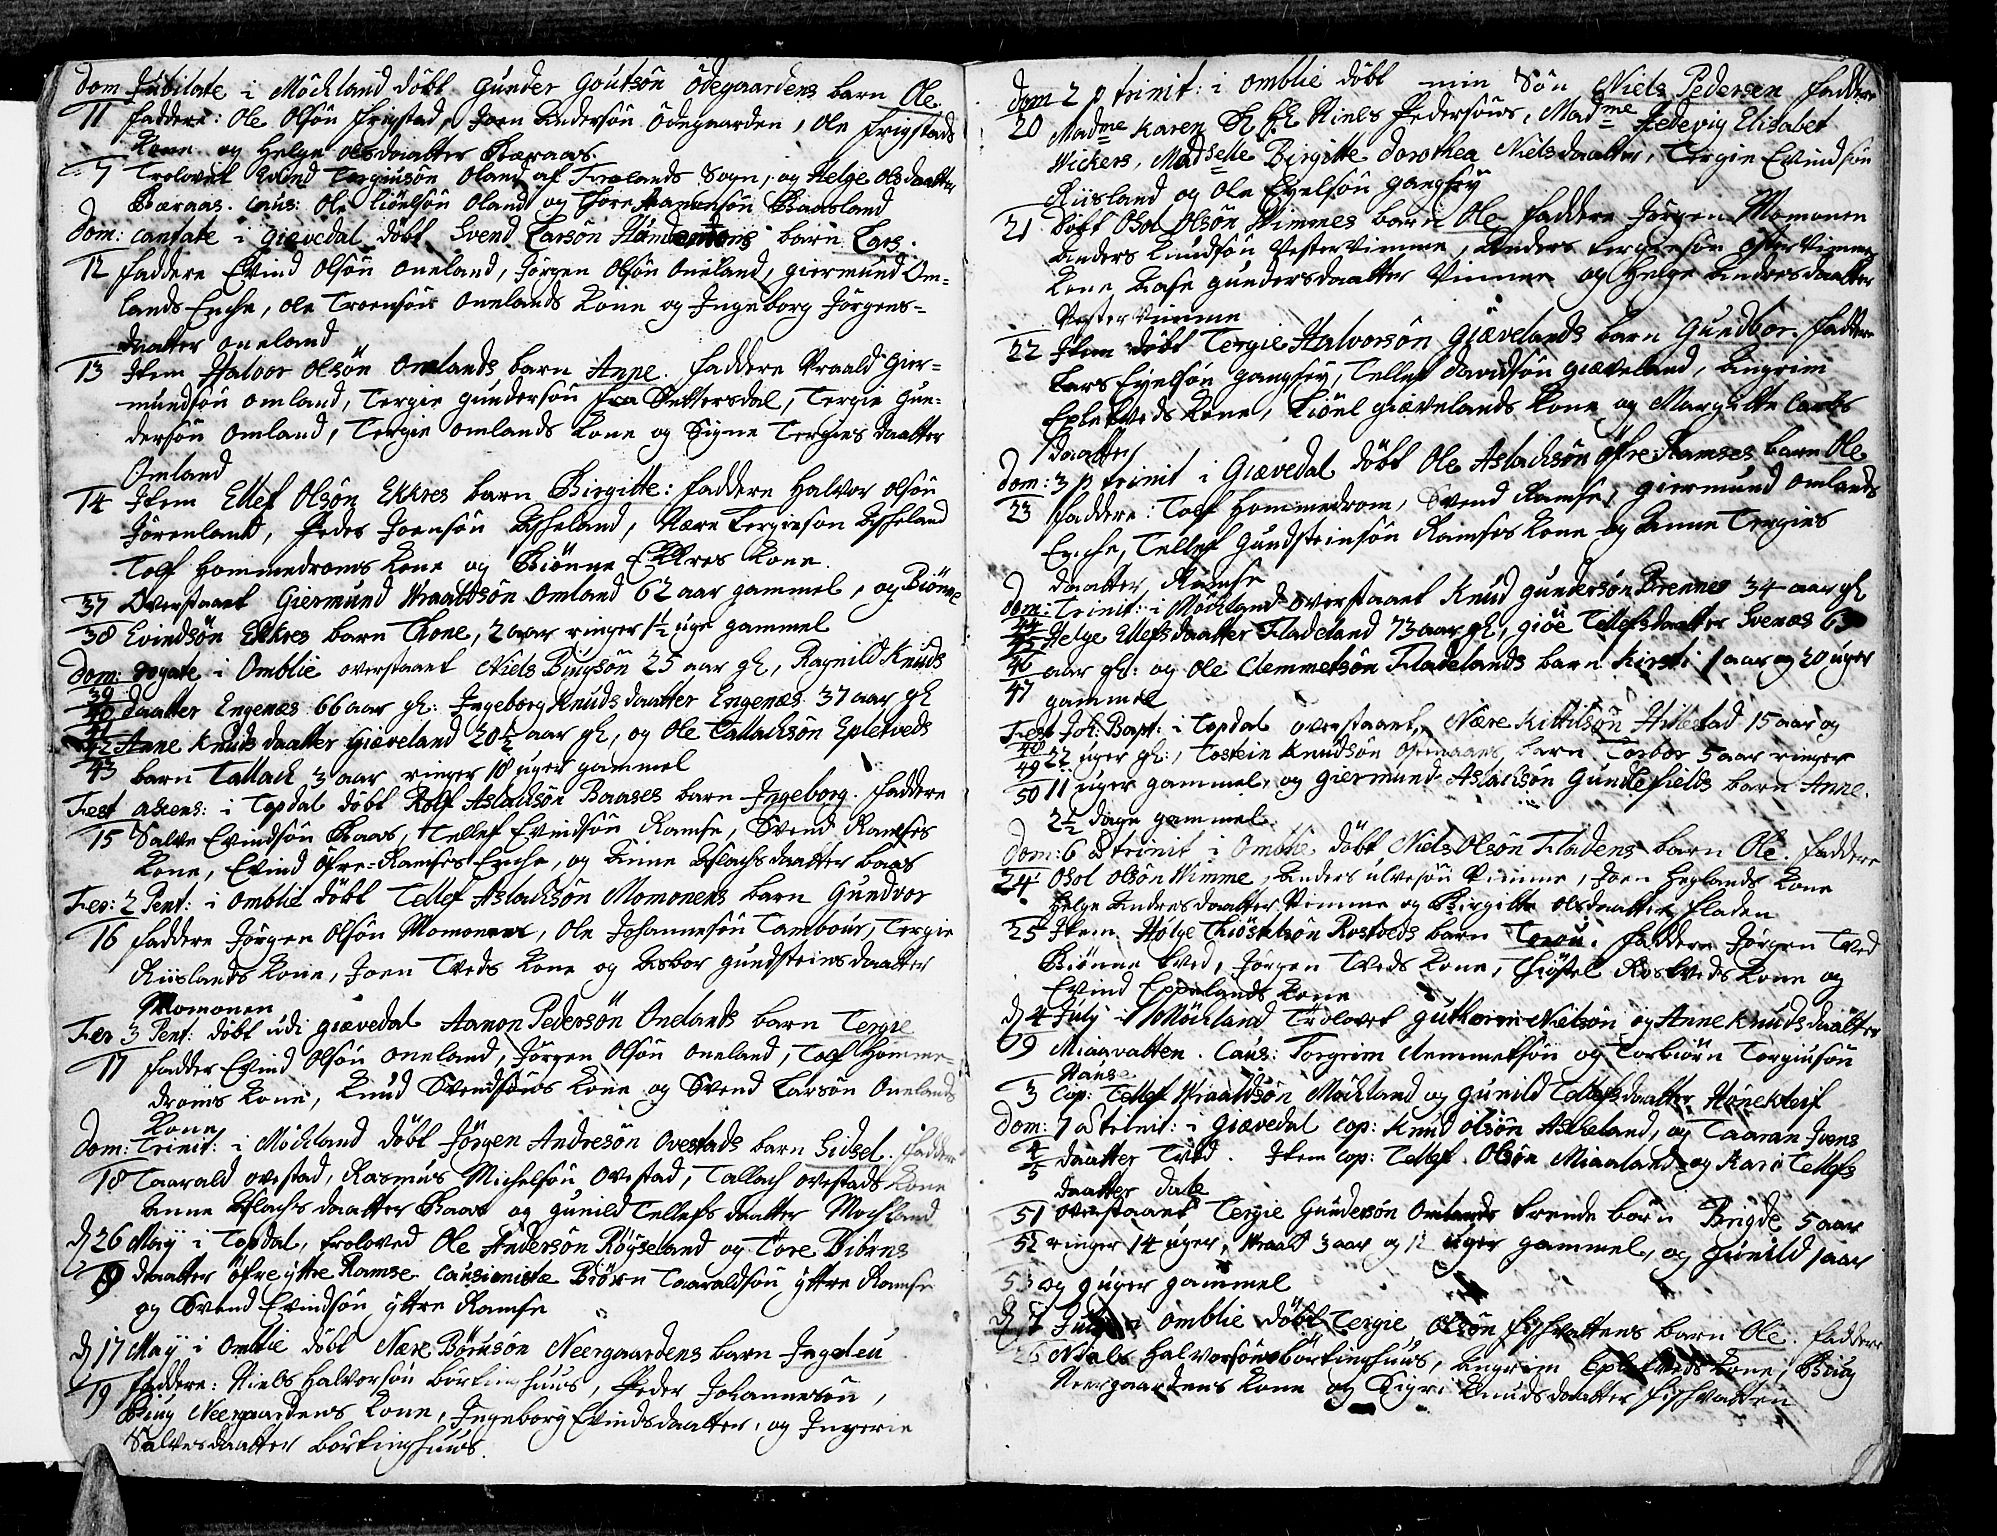 dom Jubilate i Möckland döbt Gunder Goutsön Ödegaardens barn Ole.
11 faddere: Ole Olsön frigstad, Joen Andersön Ödegaarden, Ole frigstads
Kone og Helge Olsdaatter Bæraas.
7 Trolovet Evind Torgiusön Oland af Frolands Sogn, og Helge Olsdaatter
Bæraas. Caus: Ole Liöelsön Oland og Thore Aanonsön Baasland
Dom: Cantate i Giævedal döbt Svend Larsön barn Lars.
12 faddere Evind Olsön Oneland, Jörgen Olsön Oneland, Giermund Om-
lands Enche, Ole Troensön Onelands Kone og Ingeborg Jörgens-
daatter Oneland
13 Item Halvor Olsön Omlands barn Anne. faddere Vraald Gier-
mundsön Omland, Tergie Gundersön fra Settersdal, Tergie Gun-
dersön Omland, Tergie Omlands Kone og Signe Tergies daatter
Omland
14 Item Ellef Olsön Ekkres barn Birgitte: faddere Halvor Olsön
Jörenland, Peder Joensön Askeland, Nære Tergieson Askeland
Tolf Hommedroms Kone og Biönne Ekkres Kone.
37 Overstaaet Giermund Vraaldsön Omland 62 aar gammel, og Biönne
38 Evindsön Ekkres barn Thone, 2 aar ringer 1½ uge gammel
Dom: Rogate i Omblie overstaaet Niels Biugsön 25 aar gl, Ragnild Knuds
39 40 daatter Engenæs 66 aar gl: Ingeborg Knudsdaatter Engenæs 37 aar gl
41 42 Anne Knudsdaatter Giæveland 20½ aar gl, og Ole Tallacksön Epletveds
43 barn Tallack 3 aar ringer 18 uger gammel
Fest ascens: i Topdal döbt Rolf Aslacksön Baases barn Ingeborg. faddere
15 Salve Evindsön Baas, Tellef Evindsön Ramse, Svend Ramses
Kone, Evind öfre-Ramses Enche, og Anne Aslachsdaatter baas
Fer: 2 Pent: i Omblie döbt Tellef Aslacksön Momonens barn Gundvor
16 faddere Jörgen Olsön Momonen, Ole Johannesön Tambour, Tergie
Riislands Kone, Joen Tveds Kone og Asbor Gundsteinsdaatter
Momonen
Fer 3 Pent: döbt udi Giævedal Aanon Pedersön Onelands barn Tergie
17 fadder Evind Olsön Oneland, Jörgen Olsön Oneland, Tolf Homme-
droms Kone, Knud Svendsöns Kone og Svend Larsön Onelands
Kone
Dom: Trinit: i Möckland döbt Jörgen Andresön Ovestads barn Sidsel. fadder
18 Taarald ovestad, Rasmus Michelsön Ovestad, Tallach ovestads Kone
Anne Aslachsdaatter Baas og Gunild Tellefsdaatter Mochland
d 26 Maij i Topdal, troloved Ole Andersön Röyseland og Tore Biörns
8 daatter öfre yttre Ramse. Causioniste Biörn Taaraldsön yttre Ramse
og Svend Evindsön yttre Ramse
d 17 Maij i Omblie döbt Nære Börusön Neergaardens barn Ingeleu
19 faddere: Niels Halvorsön börtinghuus, Peder Johannesön,
Biug Neergaardens Kone, Ingeborg Evindsdaatter, og Ingerie
Salvesdaatter börtinghuus.
dom 2 p trinit: i Omblie döbt min Sön Niels Pedersen faddere
20 Madme Karen Niels Pedersöns, Madme Hedevig Elisabet
Wickers, Madselle Birgitte Dorothea Nielsdaatter, Tergie Evindsön
Riisland og Ole Eyelsön Gangsey
21 Döbt Osol Olsön Wimmes barn Ole faddere Jörgen Momonen
Anders Knudsön Vestervimme, Anders Tergiesön Östervimme
Kone Aase Gundersdaatter Vimme og Helge Andersdaatter
Vestervimme
22 Item döbt Tergie Halvorsön Giævelands barn Gundbor. fadder
Lars Eyelsön Gangsey, Tellef Davidsön Giæveland, Angrim
Epletveds Kone, Liöel Giævelands Kone og Margitte Larss
daatter
Dom: 3 p trinit i Giævedal döbt Ole Aslachsön öfre Ramses barn Ole
23 faddere: Tolf Hommedrom, Svend Ramse, Giermund Omlands
Enche, Tellef Gundsteinsön Ramses Kone og Anne Tergies
daatter Ramse
Dom: Trinit: i Möckland overstaaet Knud Gundersön Brennes 34 aar gl
44 45 Helge Ellefsdaatter Fladeland 73 aar gl, giöe Tellefsdaatter Svenæs 63
46 aar gl: og Ole Clemmetsön Fladelands barn Kirsti 1 aar og 20 uger
47 gammel
Fest Joh: Bapt: i Topdal overstaaet Nære Kittilsön Hillestad 15 aar og
48 49 22 uger gl:, Tostein Knudsön barn Torbor 5 aar ringer
50 11 uger gammel, og Giermund Aslacksön Gundlefields barn Anne.
2½ dage gammel.
Dom: 6 a trinit i Omblie döbt Niels Olsön Fladens barn Ole. faddere
24 Osol Olsön Wimme, Anders Ulvesön Vimme, Joen Heglands Kone
Helge Andersdaatter Vimme og Birgitte Olsdaatter Fladen
25 Item Hölge Thiöstelsön Rostveds barn Tarou. faddere Jörgen Tved
Biönne Tved, Jörgen Tveds Kone, Thiöstel Rostveds Kone og
Evind Eppelands Kone
d 4 July i Möckland Trolovet Guttorm Nielsön og Anne Knudsdaatter
9 Miaavatten. Caus: Torgrim Clemmetsön og Torbiörn Torgiusön
Hause
3 Cop: Tellef Vraaldsön Möckland og Gunild Tellefsdaatter Hönekleif
Dom: 7 a trinit: i Giævedal cop: Knud Olsön Askeland, og Taaran Ivers
4 5 daatter Tved. Item cop: Tellef Olsön Miaaland og Kari Tellefs
daatter Dale
51 overstaaet Tergie Gundersön Omlands trende börn Brigde 5 aar
52 ringer 14 uger, Vraald 3 aar og 12 uger gammel, og Gunild 1 aar
53 og 9 uger gammel
d 7 July i Omblie döbt Tergie Olsön fisvattens barn Ole. faddere
26 Niels Halvorsön börtinghuus, Angrim Epletveds Kone, Biug
Neergaardens Kone og Sigri Knudsdaatter fisvatten